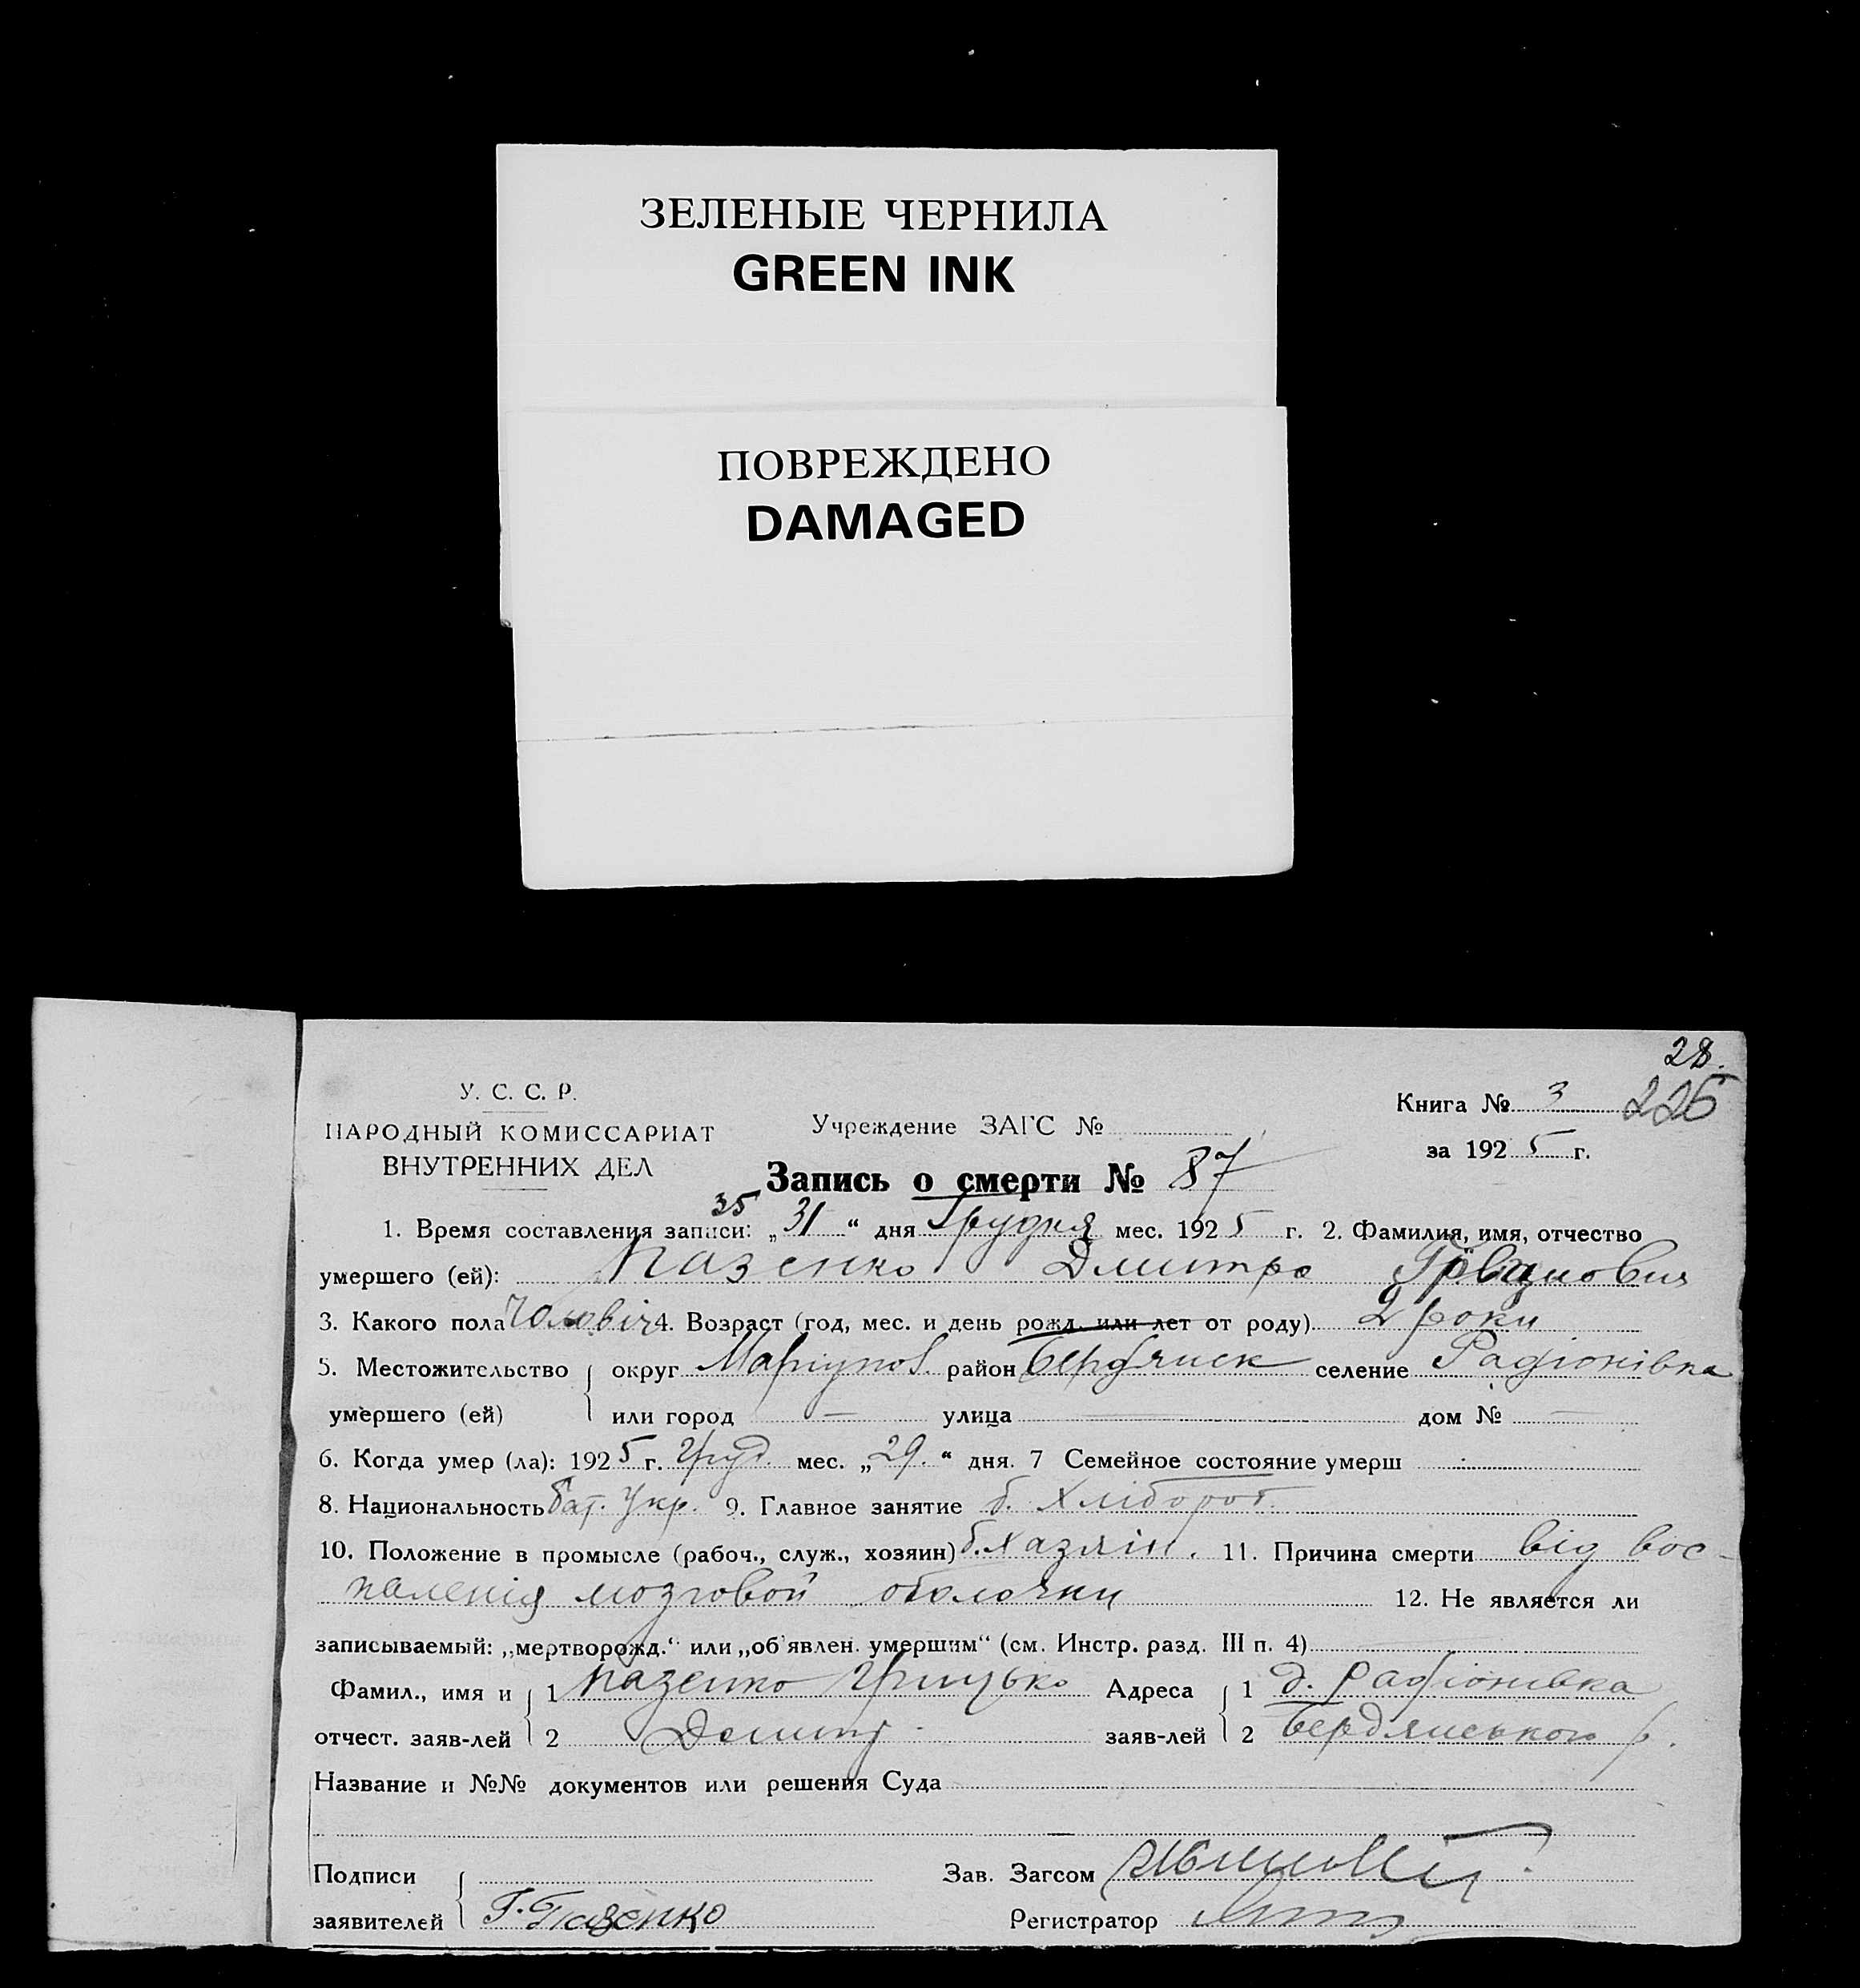 ЗЕЛЕНЫЕ ЧЕРНИЛА
GREEN INK
ПОВРЕЖДЕНО
DAMAGED
28.
226
У. С. С. Р.
НАРОДНЫЙ КОМИССАРИАТ
ВНУТРЕННИХ ДЕЛ
Учреждение ЗАГС №
Книга № 3
за 1925 г.
Запись о смерти № 87
35
1. Время составления записи: „31“ дня Грудня мес. 1925 г. 2. Фамилия, имя, отчество
умершего (ей): Пазенко Дмитро
3. Какого пола Чоловіч 4. Возраст (год, мес. и день рожд. или лет от роду) 2 роки
5. Местожительство округ Маріупол. район Бердянск селение Радіонівка
умершего (ей) или город — улица — дом № —
6. Когда умер (ла): 1925 г. Груд. мес. „29.“ дня. 7 Семейное состояние умерш
8. Национальность бат. Укр. 9. Главное занятие б. Хлібороб.
10. Положение в промысле (рабоч., служ., хозяин) б. Хазяїн. 11. Причина смерти від вос-
паленія мозговой оболочки 12. Не является ли
записываемый: „мертворожд.“ или „об'явлен. умершим“ (см. Инстр. разд. III п. 4)
Фамил., имя и 1 Пазенко Грицько Адреса 1 д. Радіонівка
отчест. заяв-лей 2 заяв-лей 2 Бердянського р.
Название и №№ документов или решения Суда
Подписи Зав. Загсом
заявителей Г. Пазенко Регистратор